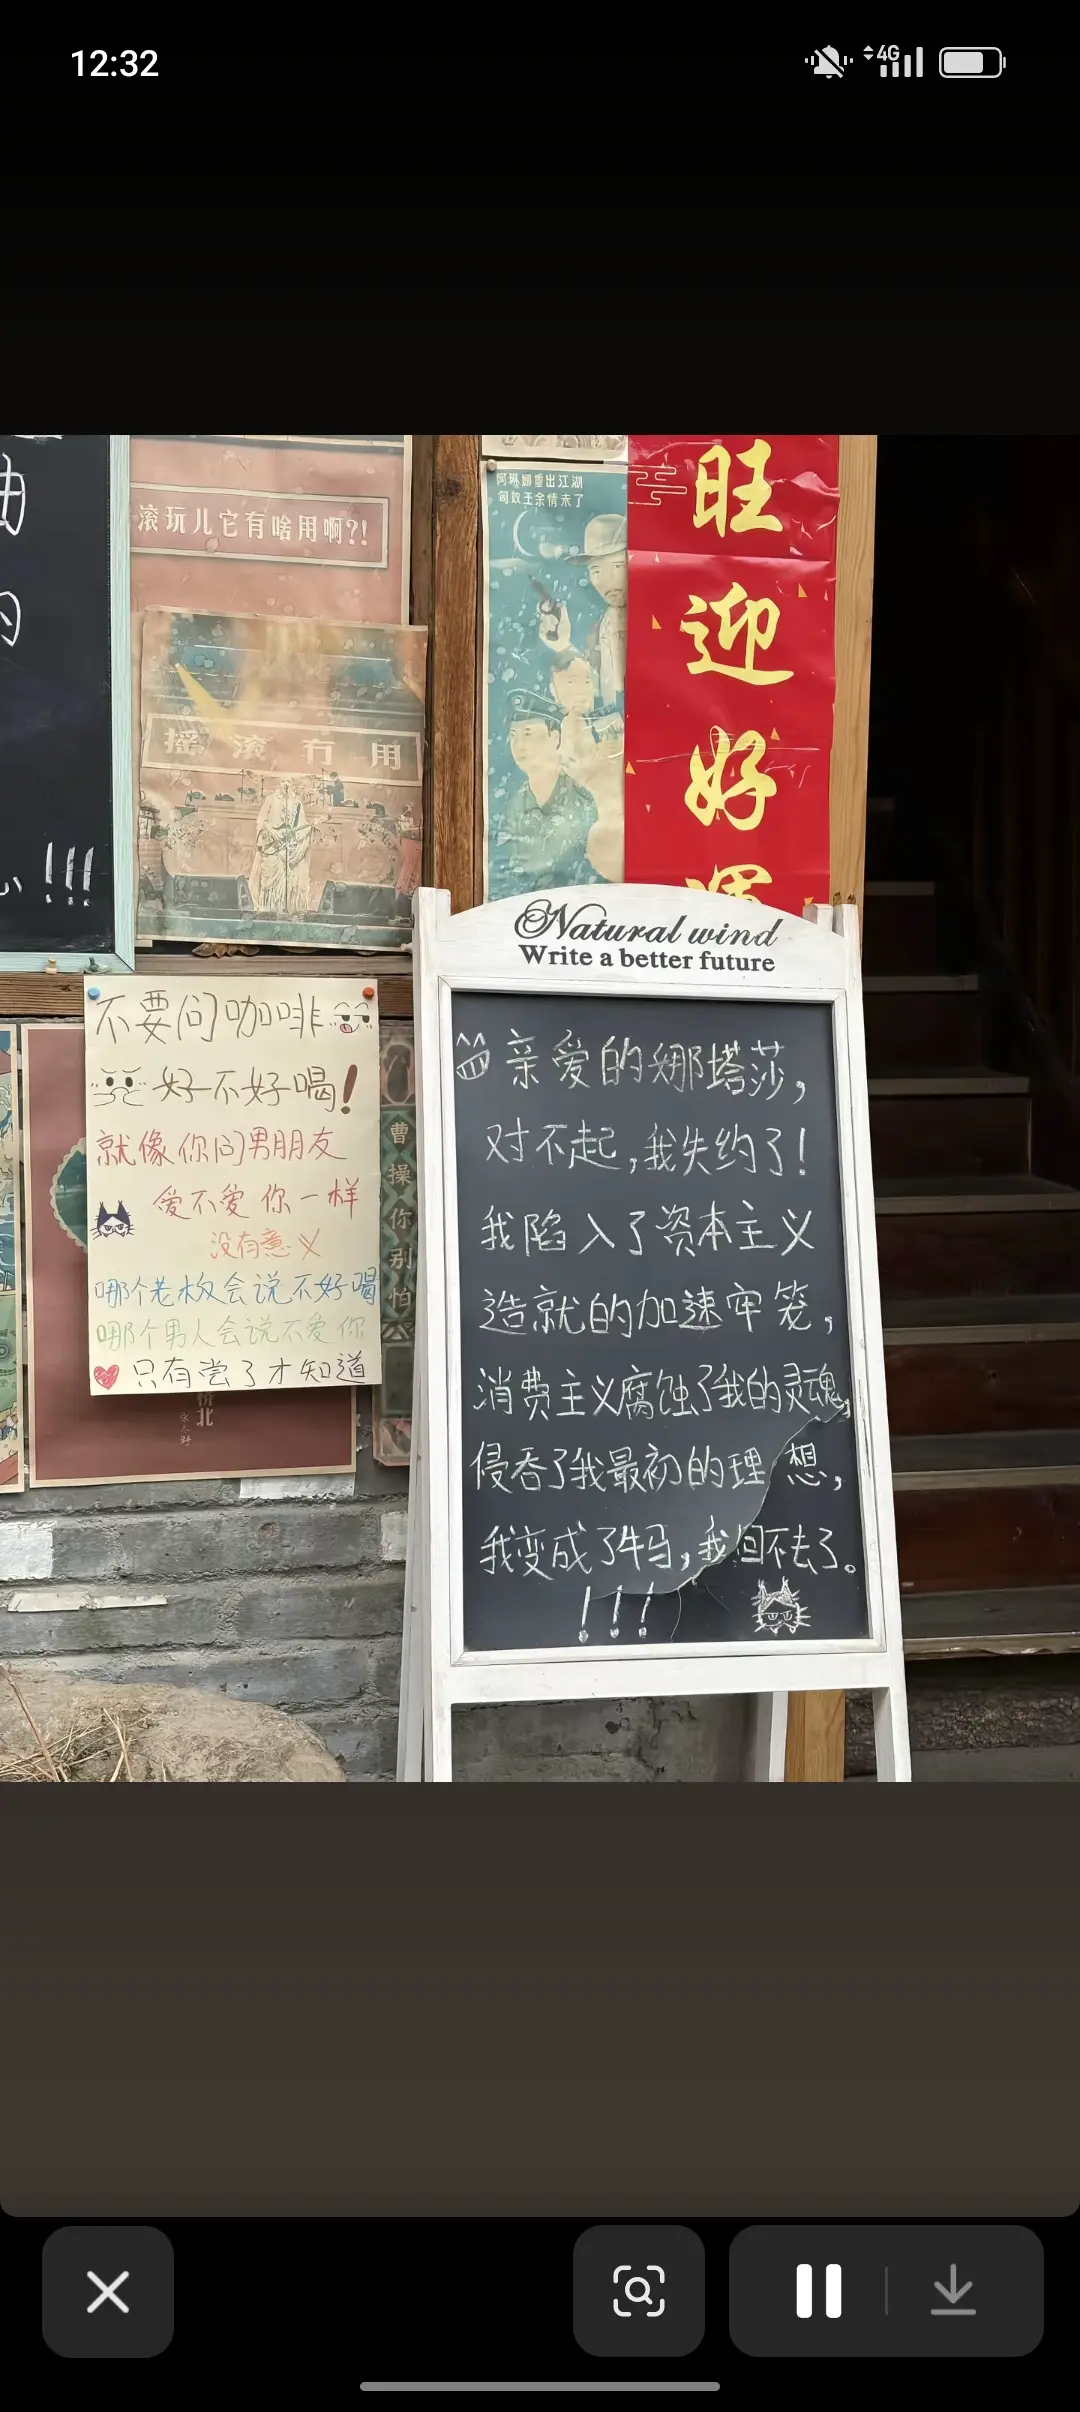 12:32
4G
滚玩儿它有啥用啊?!
摇滚有用
阿琳娜重出江湖
匈奴王余情未了
旺
迎
好
运
Natural wind
Write a better future
亲爱的娜塔莎,
对不起,我失约了!
我陷入了资本主义
造就的加速牢笼,
消费主义腐蚀了我的灵魂,
侵吞了我最初的理想,
我变成了牛马,我回不去了。
!!!
不要问咖啡
好不好喝!
就像你问男朋友
爱不爱你一样
没有意义
哪个老板会说不好喝
哪个男人会说不爱你
只有尝了才知道
曹操你别怕
的
!!!